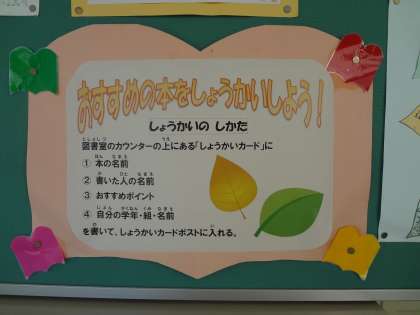 おすすめの本をしょうかいしよう！
しょうかいの しかた
図書室のカウンターの上にある「しょうかいカード」に
① 本の名前
② 書いた人の名前
③ おすすめポイント
④ 自分の学年・組・名前
を書いて、しょうかいカードポストに入れる。